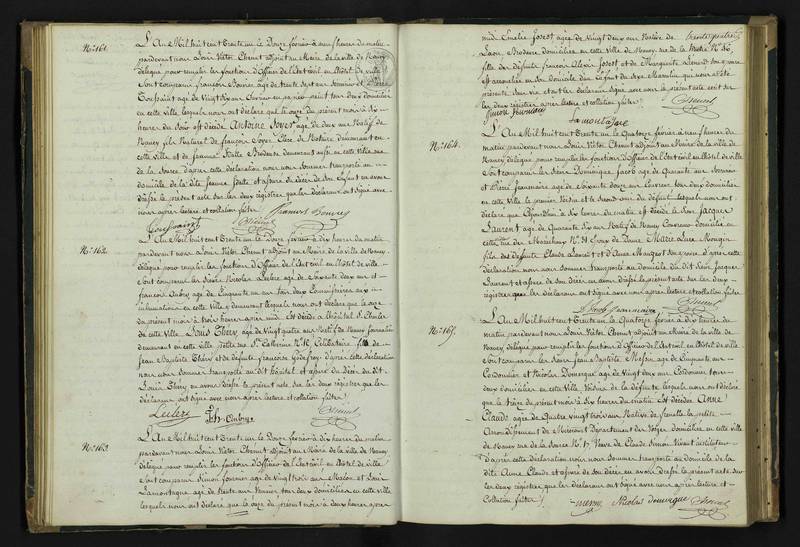 N.° 161.
L'An Mil huit cent Trente un le Douze février à heures du matin
pardevant nous Louis Victor Chenut adjoint au Maire de la ville de Nancy
délégué pour remplir les fonctions d'Officier de l'Etat civil en l'hôtel de ville
Sont comparus françois âgé de trente sept ans et
âgé de Vingt Six ans Ouvrier en papier peint tous deux domiciliés
en cette ville, lesquels nous ont déclaré que le onze du présent mois à Six
heures du Soir est décédé Antoine Soyer âgé de deux ans Natif de
Nancy fils Naturel de françois Soyer demeurant en
cette ville et de Jeanne Brodeuse demeurant aussi en cette Ville rue
de la Source D'après cette déclaration nous nous sommes transporté au
domicile de la dite Jeanne et assuré du décès de son Enfant en avons
dressé le présent acte sur les deux registres que les déclarants ont signé avec
nous après lecture et collation faites
Chenut
N.° 162.
L'An Mil huit cent Trente un le Douze février à dix heures du matin
pardevant nous Louis Victor Chenut adjoint au Maire de la ville de Nancy
délégué pour remplir les fonctions d'Officier de l'Etat civil en l'hôtel de ville
Sont comparus les Sieurs Nicolas Leclerc âgé de Soixante deux ans et
françois Aubry âgé de Cinquante un ans tous deux Commissaires aux
inhumations en cette Ville y demeurant lesquels nous ont déclaré que le onze
du présent mois à Trois heures après midi est décédé à l'hôpital St. Charles
de cette Ville Louis Thiery âgé de Vingt quatre ans Natif de Nancy
demeurant en cette ville petite rue Ste. Catherine N.° 10, Célibataire fils de
Jean Baptiste Thiéry et de défunte françoise Godefroy d'après cette déclaration
nous nous sommes transporté au dit hôpital et assuré du décès du dit
Louis Thiery en avons dressé le présent acte sur les deux registres que les
déclarants ont signé avec nous après lecture et collation faites
Leclerc fch. Aubry Chenut
N.° 163.
L'An Mil huit cent Trente un le Douze février à dix heures du matin
pardevant nous Louis Victor Chenut adjoint au Maire de la ville de Nancy
délégué pour remplir les fonctions d'Officier de l'Etat civil en l'hôtel de ville
Sont comparus Simon fournier âgé de Vingt trois ans et Louis
Lamontagne âgé de trente ans tous deux domiciliés en cette ville
lesquels nous ont déclaré que le onze du présent mois à deux heures après
midi Emelie Josset âgée de Vingt deux ans Native de
Laon Brodeuse domiciliée en cette ville de Nancy rue de la
fille des défunts françois Alexis Josset et de Marguerite
est accouchée en son domicile d'un Enfant du sexe Masculin qui nous a été
présenté Sans vie et ont les déclarants signé avec nous le présent acte écrit sur
les deux registres après lecture et collation faites
Simon fournier Lamontagne Chenut
N.° 164.
L'An Mil huit cent Trente un le Quatorze février à neuf heures du
matin pardevant nous Louis Victor Chenut adjoint au Maire de la ville de
Nancy délégué pour remplir les fonctions d'Officier de l'Etat civil en l'hôtel de ville
Sont comparus les Sieurs Dominique Jacob âgé de Quarante ans
et Pierre Jeanmaire âgé de Soixante douze ans Couvreur tous deux domiciliés
en cette ville le premier Voisin et le Second ami du défunt lesquels nous ont
déclaré que Aujourd'hui à Six heures du matin est décédé le Sieur Jacques
Laurent âgé de Quarante Six ans Natif de Nancy Couvreur domicilié en
cette ville rue des Maréchaux N.° 21 Epoux de Dame
fils des défunts Claude Laurent et d'Anne Son épouse d'après cette
déclaration nous nous sommes transporté au domicile du dit Sieur Jacques
Laurent et assuré de son décès en avons dressé le présent acte sur les deux
registres que les déclarants ont signé avec nous après lecture et collation faites
Jacob Jeanmaire Chenut
N.° 165.
L'An Mil huit cent Trente un le Quatorze février à dix heures du
matin pardevant nous Louis Victor Chenut adjoint au Maire de la ville
de Nancy délégué pour remplir les fonctions d'Officier de l'Etat civil en l'hôtel de ville
Sont comparus les Sieurs Jean Baptiste âgé de Cinquante ans
Cordonnier et Nicolas Domergue âgé de Vingt deux ans Cordonnier tous
deux domiciliés en cette Ville Voisins de la défunte lesquels nous ont déclaré
que le treize du présent mois à dix heures du matin est décédée Anne
Claude âgée de Quatre vingt trois ans Native de
Arrondissement de Mirecourt Département des Vosges domiciliée en cette ville
de Nancy rue de la Source N.° 17 Veuve de Claude Simon Vivant instituteur
D'après cette déclaration nous nous sommes transporté au domicile de la
dite Anne Claude et assuré de son décès en avons dressé le présent acte sur
les deux registres que les déclarants ont signé avec nous après lecture et
Collation faites
Nicolas Domergue Chenut